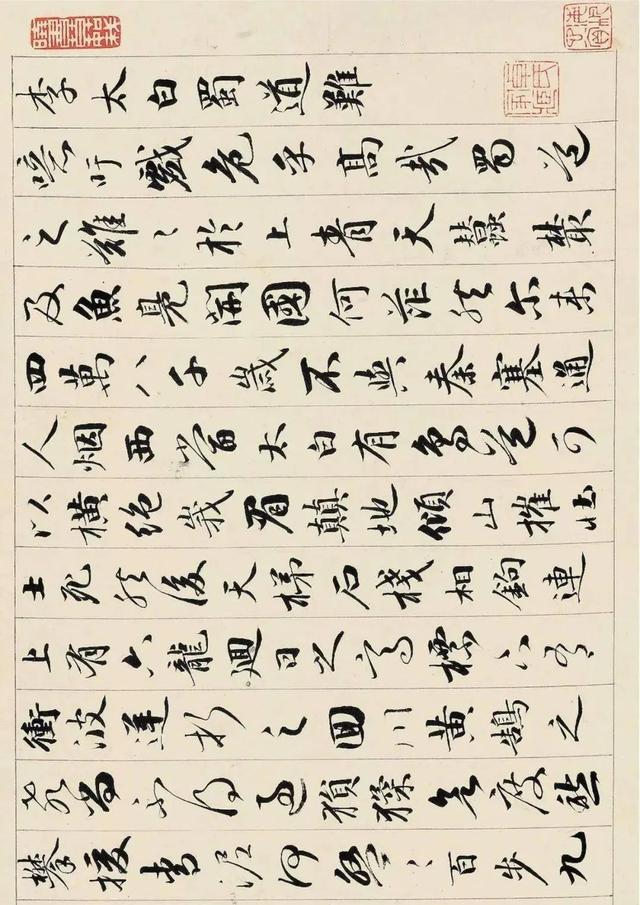 李太白蜀道難
噫吁戲危乎高哉蜀道
之難〻於上青天蠶叢
及魚鳧開國何茫然尔来
四萬八千歲不與秦塞通
人烟西當太白有鳥道可
以橫絕峨眉顛地傾山摧壮
士死然後天梯石棧相鈎連
上有六龍迴日之高標下有
衝波逆折之回川黃鵠之
飛尚不得過猿猱欲度愁
攀援青泥何盤〻百步九